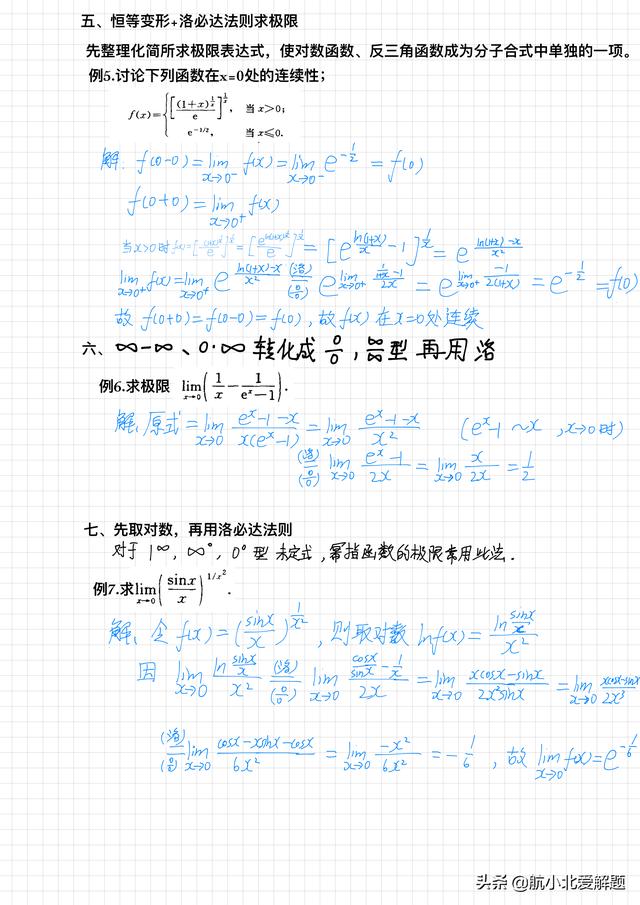 五、恒等变形+洛必达法则求极限
先整理化简所求极限表达式，使对数函数、反三角函数成为分子合式中单独的一项。
例5.讨论下列函数在x=0处的连续性；
f(x)={[(1+x)^{1/x}/e]^{1/x}, 当 x>0;
e^{-1/2}, 当 x≤0.
解. f(0-0)=lim_{x→0^-} f(x)=lim_{x→0^-} e^{-1/2}=f(0)
f(0+0)=lim_{x→0^+} f(x)
当x>0时 f(x)=[(1+x)^{1/x}/e]^{1/x}=[e^{ln(1+x)/x}/e]^{1/x}=[e^{ln(1+x)/x}-1]^{1/x}=e^{(ln(1+x)-x)/x²}
lim_{x→0^+} f(x)=lim_{x→0^+} e^{(ln(1+x)-x)/x²} (洛)(0/0) e^{lim_{x→0^+} (1/(1+x)-1)/2x}=e^{lim_{x→0^+} -1/2(1+x)}=e^{-1/2}=f(0)
故 f(0+0)=f(0-0)=f(0),故f(x)在x=0处连续
六、∞-∞、0·∞ 转化成 0/0, ∞/∞型 再用 洛
例6.求极限 lim_{x→0}(1/x-1/(e^x-1)).
解. 原式=lim_{x→0} (e^x-1-x)/x(e^x-1)=lim_{x→0} (e^x-1-x)/x² (e^x-1~x ,x→0时)
(洛)(0/0) lim_{x→0} (e^x-1)/2x=lim_{x→0} x/2x=1/2
七、先取对数，再用洛必达法则
对于 1^∞, ∞^0, 0^0型 未定式,幂指函数的极限常用此法.
例7.求lim_{x→0}(sin x/x)^{1/x²}.
解. 令 f(x)=(sinx/x)^{1/x²}, 则取对数 lnf(x)=ln(sinx/x)/x²
因 lim_{x→0} ln(sinx/x)/x² (洛)(0/0) lim_{x→0} (cosx/sinx-1/x)/2x=lim_{x→0} (xcosx-sinx)/2x²sinx=lim_{x→0} (xcosx-sinx)/2x³
(洛)(0/0) lim_{x→0} (cosx-xsinx-cosx)/6x²=lim_{x→0} -x²/6x²=-1/6, 故 lim_{x→0} f(x)=e^{-1/6}
头条 @航小北爱解题